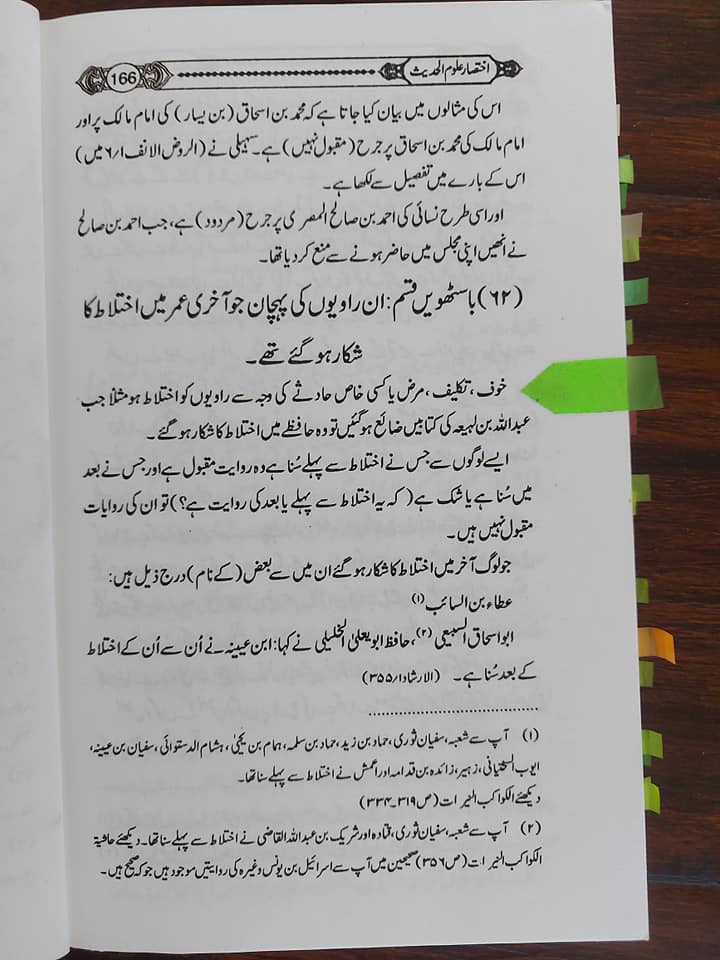 166
اختصار علوم الحدیث
اس کی مثالوں میں بیان کیا جاتا ہے کہ محمد بن اسحاق (بن یسار) کی امام مالک پر اور
امام مالک کی محمد بن اسحاق پر جرح (مقبول نہیں) ہے۔ سہیلی نے (الروض الانف ۶/۱ میں)
اس کے بارے میں تفصیل سے لکھا ہے۔
اور اسی طرح نسائی کی احمد بن صالح المصری پر جرح (مردود) ہے، جب احمد بن صالح
نے انھیں اپنی مجلس میں حاضر ہونے سے منع کر دیا تھا۔
(۶۲) باسٹھویں قسم: ان راویوں کی پہچان جو آخری عمر میں اختلاط کا
شکار ہو گئے تھے۔
خوف، تکلیف، مرض یا کسی خاص حادثے کی وجہ سے راویوں کو اختلاط ہو مثلاً جب
عبداللہ بن لہیعہ کی کتابیں ضائع ہو گئیں تو وہ حافظے میں اختلاط کا شکار ہو گئے۔
ایسے لوگوں سے جس نے اختلاط سے پہلے سُنا ہے وہ روایت مقبول ہے اور جس نے بعد
میں سُنا ہے یا شک ہے ( کہ یہ اختلاط سے پہلے یا بعد کی روایت ہے؟) تو ان کی روایات
مقبول نہیں ہیں۔
جو لوگ آخر میں اختلاط کا شکار ہو گئے ان میں سے بعض (کے نام) درج ذیل ہیں:
عطاء بن السائب (۱)
ابو اسحاق السبیعی (۲)، حافظ ابو یعلیٰ الخلیلی نے کہا: ابن عیینہ نے اُن سے اُن کے اختلاط
کے بعد سُنا ہے۔ (الارشاد ۳۵۵/۱)
(۱) آپ سے شعبہ، سفیان ثوری، حماد بن زید، حماد بن سلمہ، ہمام بن یحییٰ، ہشام الدستوائی، سفیان بن عیینہ،
ایوب السختیانی، زہیر، زائدہ بن قدامہ اور اعمش نے اختلاط سے پہلے سنا تھا۔
دیکھئے الکواکب النیرات (ص ۳۱۹۔۳۳۴)
(۲) آپ سے شعبہ، سفیان ثوری، قتادہ اور شریک بن عبداللہ القاضی نے اختلاط سے پہلے سنا تھا۔ دیکھئے حاشیۃ
الکواکب النیرات (ص ۳۵۶) صحیحین میں آپ سے اسرائیل بن یونس وغیرہ کی روایتیں موجود ہیں جو کہ صحیح ہیں۔